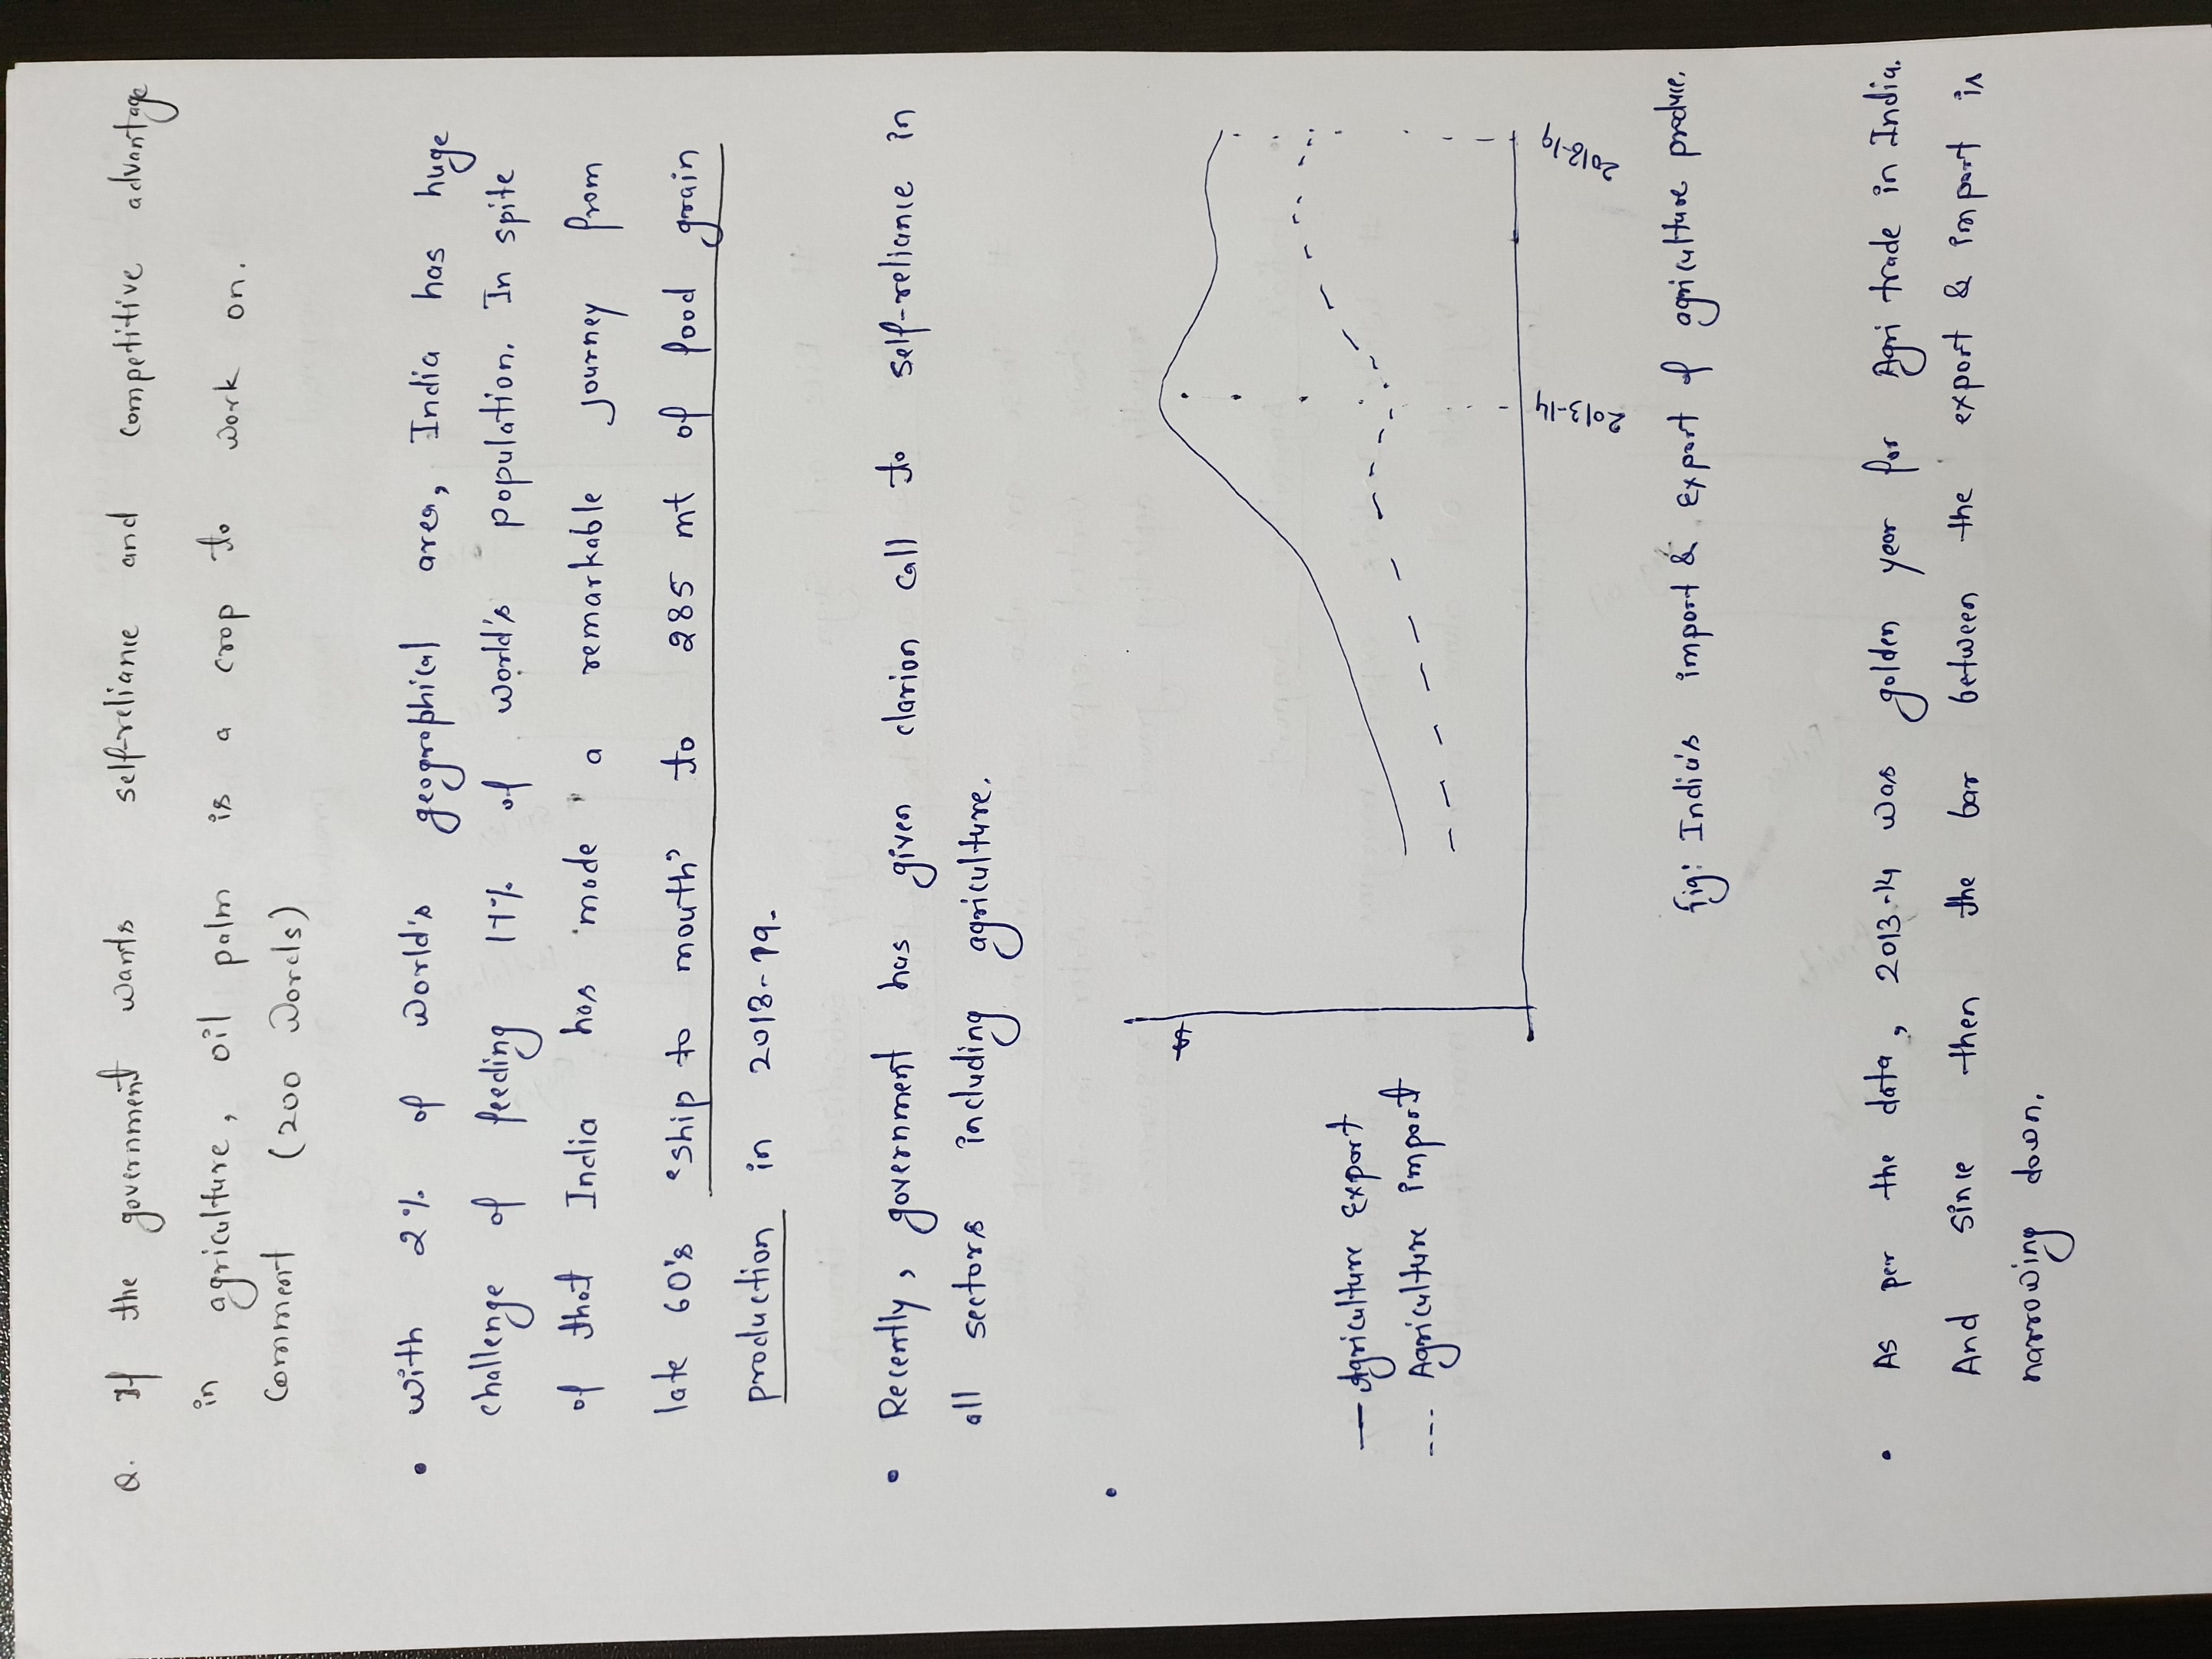 Q. If the government wants self-reliance and competitive advantage
in agriculture, oil palm is a crop to work on.
Comment (200 words)
• with 2% of world's geographical area, India has huge
challenge of feeding 17% of world's population. In spite
of that India has made a remarkable journey from
late 60's "ship to mouth" to 285 mt of food grain
production in 2018-19.
• Recently, government has given clarion call to self-reliance in
all sectors including agriculture.
•
— Agriculture Export
--- Agriculture import
$
2013-14
2018-19
fig: India's import & Export of agriculture produce.
• As per the data, 2013-14 was golden year for Agri trade in India.
And since then the bar between the export & import is
narrowing down.